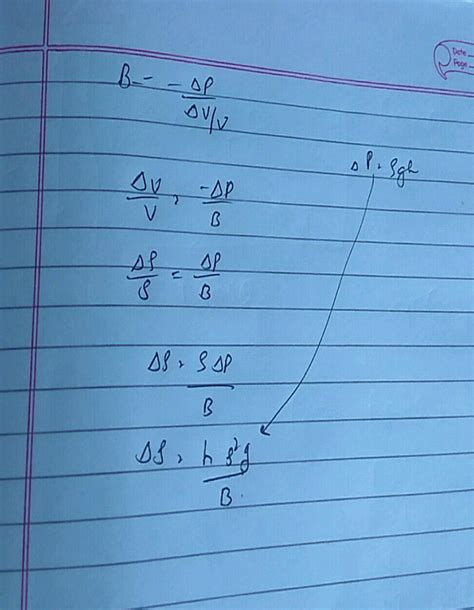 Date
Page
B = - ΔP / ΔV/V
ΔP = ρgh
ΔV/V = -ΔP/B
Δρ/ρ = ΔP/B
Δρ = ρΔP/B
Δρ = hρ²g/B